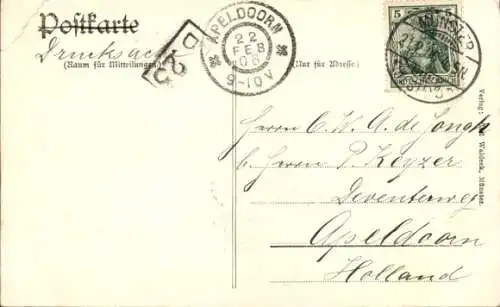 Postkarte
Drucksache
(Raum für Mitteilungen)
APELDOORN
22
FEB
08
9-10V
(Nur für Adresse)
5
MÜNSTER
Herrn C. W. A. de Jongh
b. Herrn P. Keyzer
Deventerweg
Apeldoorn
Holland
Verlag: Waldeck, Münster.